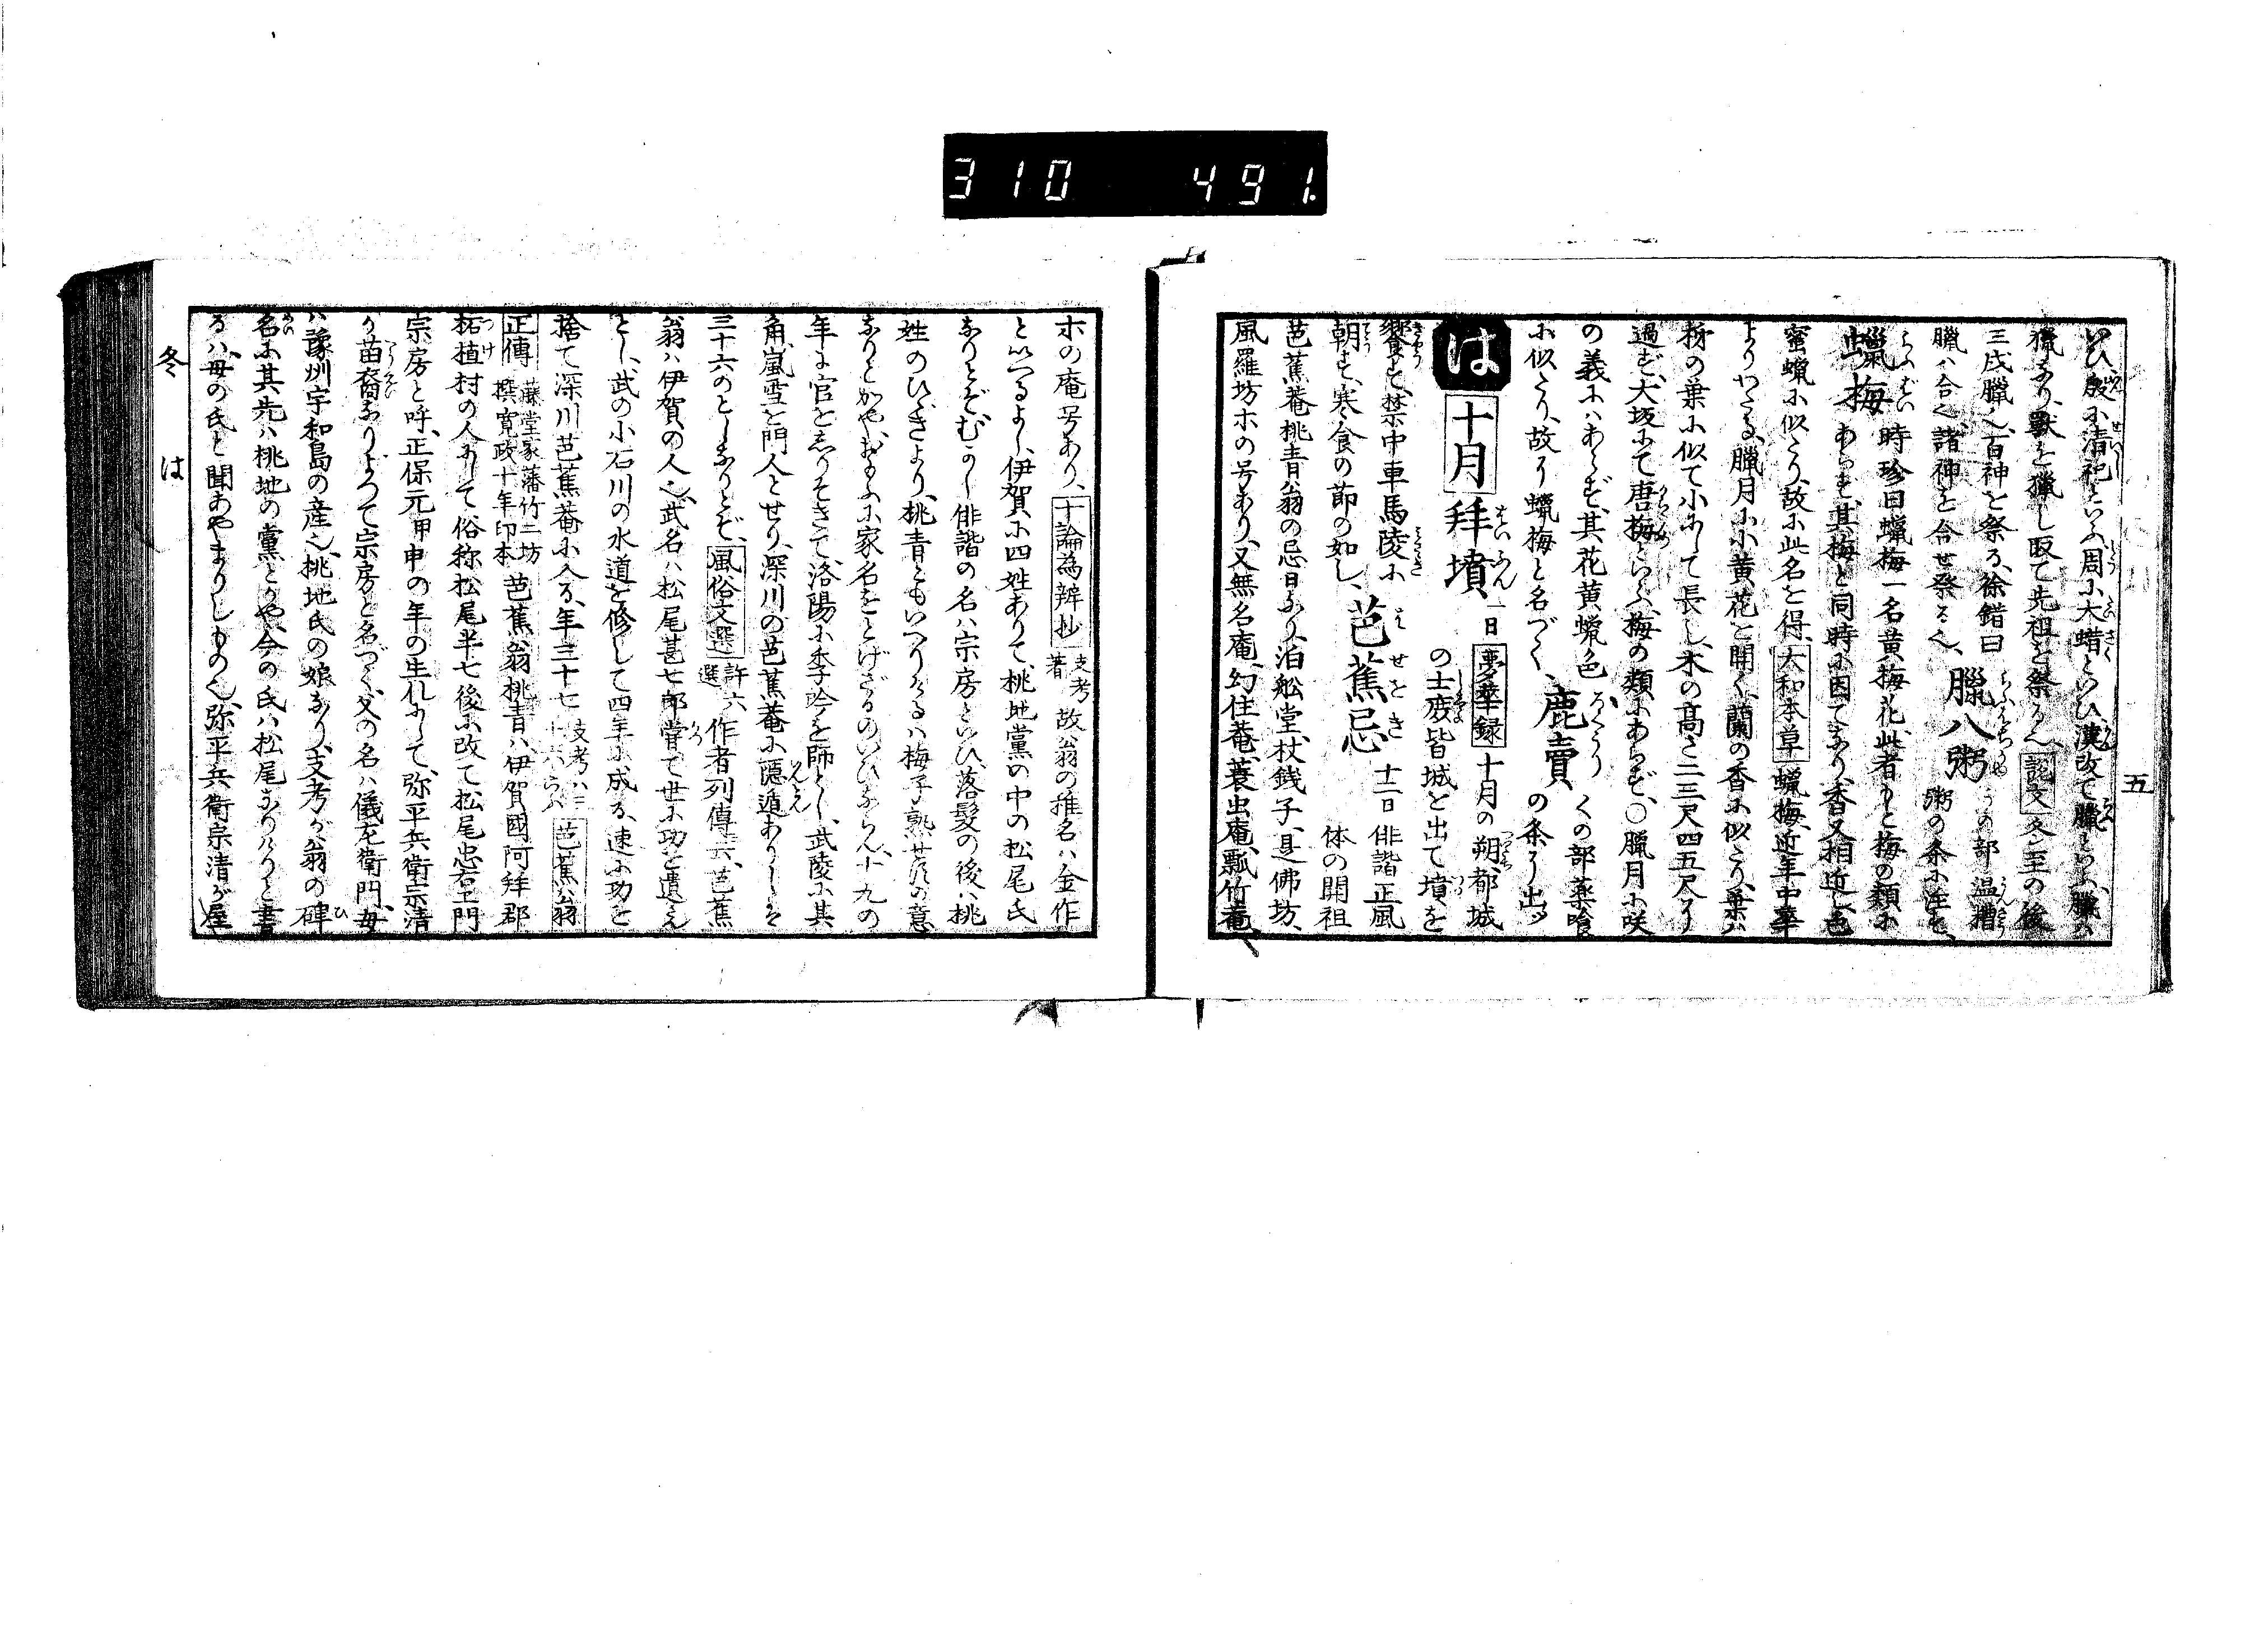 310 491.
五
いひ、殷に清祀といふ、周に大蜡といひ、漢改て臘といふ、臘は
猟なり、獣を猟し取て先祖を祭る也、説文冬至の後
三戌臘也、百神を祭る、徐鍇曰
臘ハ合也、諸神を合せ祭る也、臘八粥うの部温糟
粥の条に注す、
蠟梅時珍曰蠟梅一名黄梅花、此者もと梅の類に
あらず、其梅と同時に因てなり、香又相近し、色
蜜蝋に似たり、故に此名を得、大和本草蝋梅、近年中華
よりわたる、臘月に小黄花を開く、蘭の香に似たり、葉ハ
柃の葉に似て小にして長し、木の高さ二三尺四五尺に
過ず、大坂にて唐梅といふ、梅の類にあらず、○臘月に咲
の義にハあらず、其花黄蝋色
に似たり、故に蠟梅と名づく、鹿賣くの部薬喰
の条に出ッ
は 十月 拜墳一日 夢華録十月の朔、都城
の士庶皆城を出て墳を
饗す、禁中車馬陵に
朝す、寒食の節の如し、芭蕉忌十二日俳諧正風
体の開祖
芭蕉菴桃青翁の忌日なり、泊舩堂、杖銭子、是佛坊、
風羅坊ホの号あり、又無名庵、幻住菴、蓑虫庵、瓢竹菴、
ホの庵号あり、十論為辨抄支考著故翁の推名ハ金作
といへるよし、伊賀に四姓ありて、桃地黨の中の松尾氏
なりとぞ、むかし俳諧の名ハ宗房といひ、落髪の後ハ桃
姓のひゞきより、桃青ともいへりけるハ梅子熟せりの意
なりとかや、おもふに家名をとげざるのいひならん、十九の
年に官をしりぞきて洛陽に季吟を師とし、武陵に其
角、嵐雪を門人とせり、深川の芭蕉菴に隠遁ありしこそ
三十六のとしなりとぞ、風俗文選許六選作者列傳云、芭蕉
翁ハ伊賀の人也、武名ハ松尾甚七郎嘗て世に功を遺さん
とし、武の小石川の水道を修して四年に成る、速に功を
捨て深川芭蕉菴に入る、年三十七支考ハ三十六といふ芭蕉翁
正傳藤堂家藩竹二坊撰寛政十年印本芭蕉翁桃青ハ、伊賀國阿拜郡
柘植村の人にして俗称松尾半七後に改て松尾忠右エ門
宗房と呼、正保元甲申の年の生れにして、弥平兵衛宗清
が苗裔なりよつて宗房と名づく、父の名ハ儀左衛門、母
ハ豫州宇和島の産也、桃地氏の娘なり、支考が翁の碑
名に其先ハ桃地の黨とかや、今の氏ハ松尾なりけりと書
るハ、母の氏と聞あやまりしもの也、弥平兵衛宗清が屋
冬 は